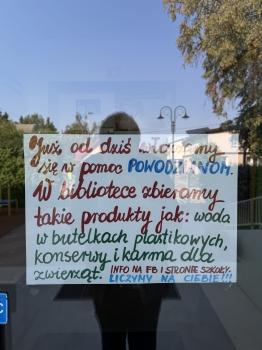 Już od dziś włączamy
się w pomoc POWODZIANOM.
W bibliotece zbieramy
takie produkty jak: woda
w butelkach plastikowych,
konserwy i karma dla
zwierząt. INFO NA FB I STRONIE SZKOŁY.
LICZYMY NA CIEBIE!!!